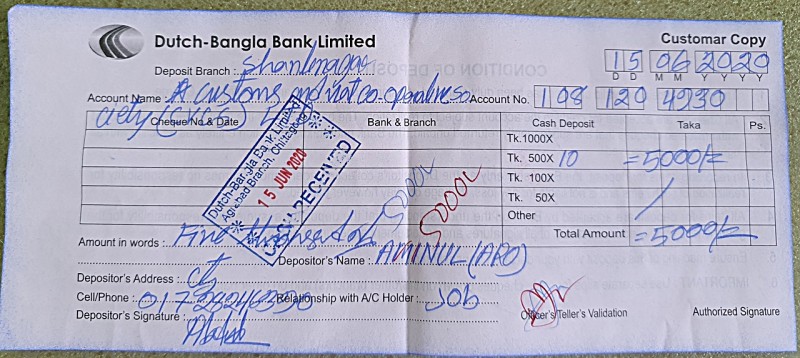 Dutch-Bangla Bank Limited
Customar Copy
Deposit Branch : Shantinagar
15 06 2020
D D M M Y Y Y Y
Account Name : customs and vat co-operative so
Account No. 108 120 4930
ciety
Cheque No & Date Bank & Branch Cash Deposit Taka Ps.
Tk. 1000X
Tk. 500X 10 =5000/=
Tk. 100X
Tk. 50X
Other
Total Amount =5000/=
Dutch-Bangla Bank Limited
Agrabad Branch, Chittagong
15 JUN 2020
CASH RECEIVED
5000
5000
Amount in words : Five thousand
Depositor's Name : AMINUL (ARO)
Depositor's Address : ctg
Cell/Phone : Relationship with A/C Holder : Job
Depositor's Signature :
Officer's/Teller's Validation
Authorized Signature